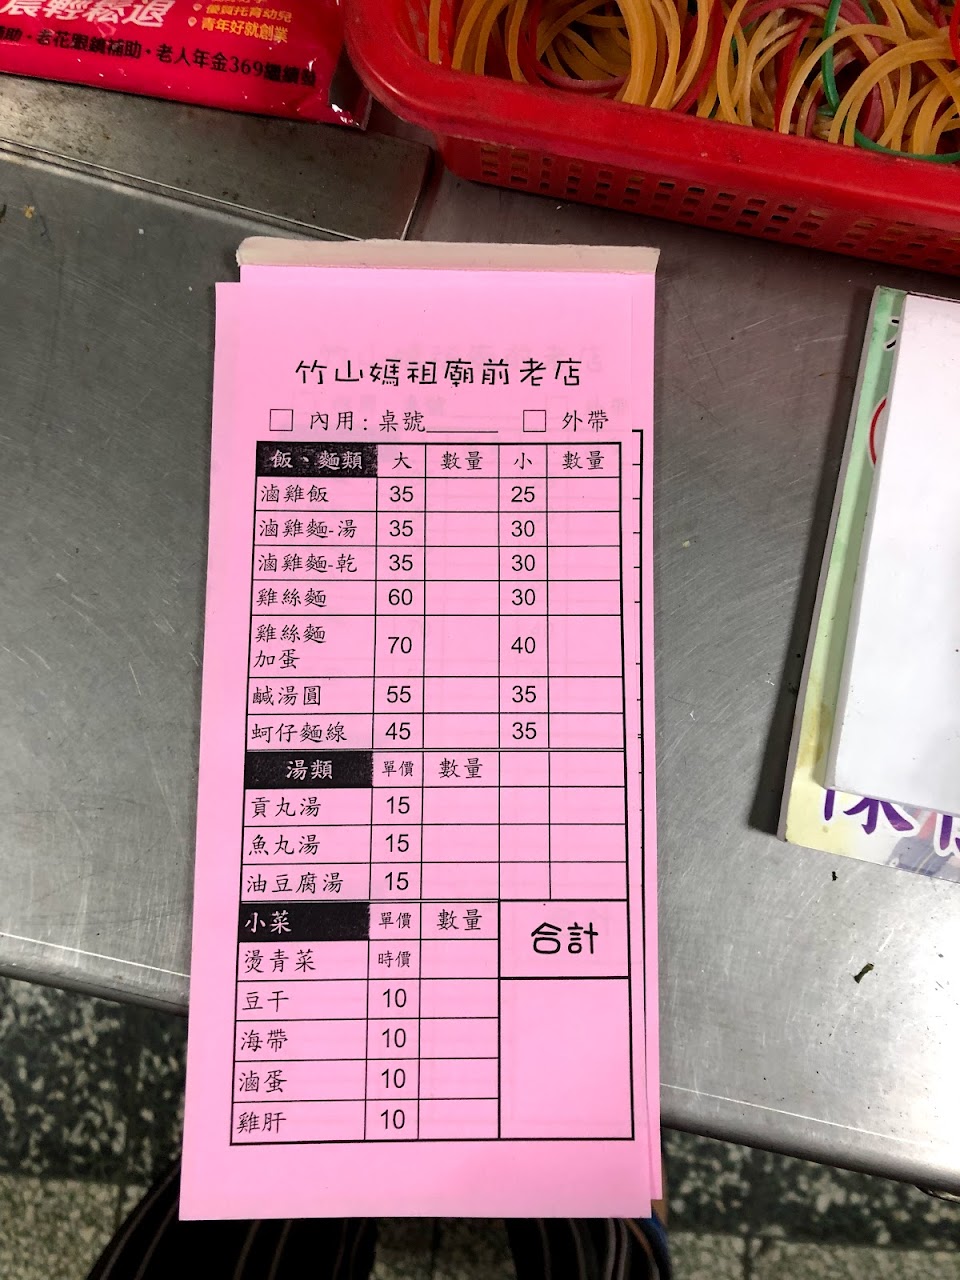 農輕鬆退
優質托育幼兒
青年好就創業
補助·老花眼鏡補助·老人年金369繼續發
竹山媽祖廟前老店
□ 內用: 桌號______ □ 外帶
飯、麵類 大 數量 小 數量
滷雞飯 35 25
滷雞麵-湯 35 30
滷雞麵-乾 35 30
雞絲麵 60 30
雞絲麵
加蛋 70 40
鹹湯圓 55 35
蚵仔麵線 45 35
湯類 單價 數量
貢丸湯 15
魚丸湯 15
油豆腐湯 15
小菜 單價 數量 合計
燙青菜 時價
豆干 10
海帶 10
滷蛋 10
雞肝 10